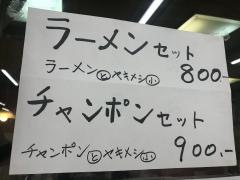 ラーメンセット
ラーメン㋣ヤキメシ㋙ 800.-
チャンポンセット
チャンポン㋣ヤキメシ小 900.-